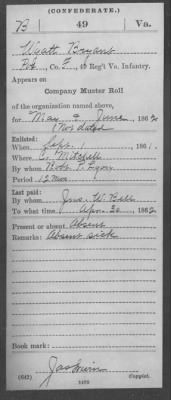 (CONFEDERATE.)
B 49 Va.
Wyatt Bryant
Pvt, Co. F, 49 Reg't Va. Infantry.
Appears on
Company Muster Roll
of the organization named above,
for May & June, 1862
(Not dated
Enlisted:
When Sept. 1, 1861.
Where C. Mitchell
By whom Robt.
Period 12 Mos
Last paid:
By whom Jno. W. Bell
To what time Apr. 30, 1862
Present or absent Absent
Remarks: Absent sick
Book mark:
(642) Copyist.